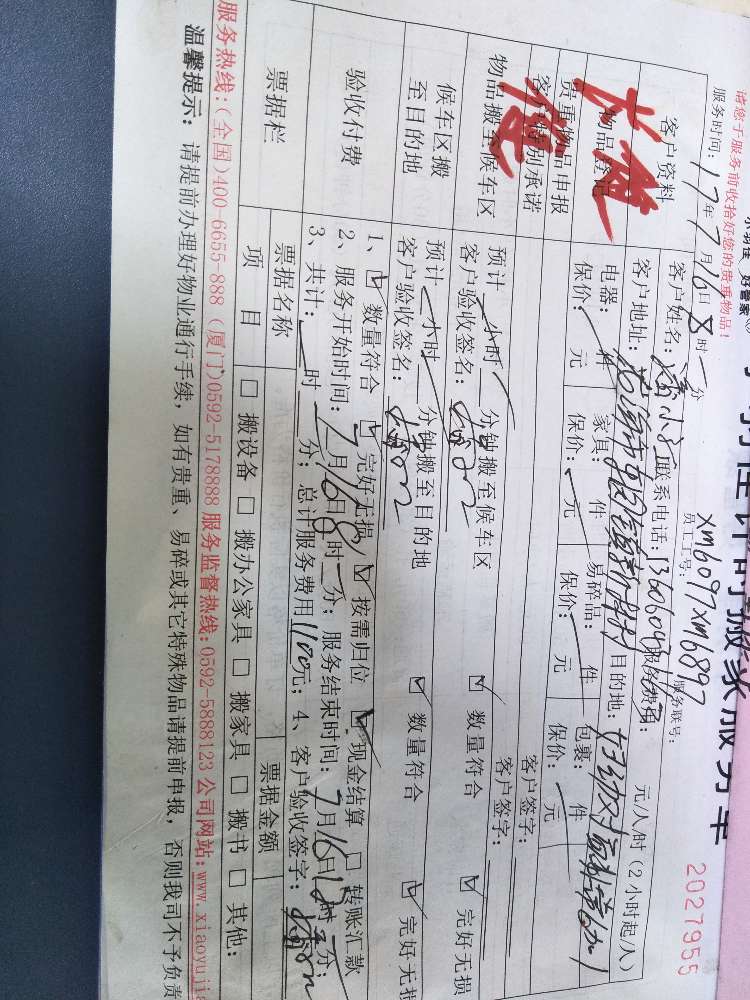 时在计时搬家服务单
请您于服务前收拾好您的贵重物品!
2027955
服务时间: 17年7月16日8时 分
员工工号: xm6097 xm6897
服务联号:
客户资料
客户姓名:
联系电话:
服务费用: 元/人/时(2小时起/人)
客户地址:
目的地:
物品登记
电器: 件 家具: 件 易碎品: 件 包裹: 件
保价: 元 保价: 元 保价: 元 保价: 元
贵重物品申报
客户签字:
客户特别承诺
客户签字:
物品搬至候车区
预计 小时 分钟搬至候车区
☑ 数量符合
☑ 完好无损
客户验收签名:
候车区搬至目的地
预计 小时 分钟搬至目的地
☑ 数量符合
☑ 完好无损
客户验收签名:
验收付费
1、☑ 数量符合 ☑ 完好无损 ☑ 按需归位 ☑ 现金结算 □ 转账汇款
2、服务开始时间: 7月16日8时 分; 服务结束时间: 7月16日12时 分;
3、共计: 时 分; 总计服务费用1100元; 4、客户验收签字:
票据栏
票据名称
票据金额
项 目
□ 搬设备 □ 搬办公家具 □ 搬家具 □ 搬书 □ 其他:
服务热线:(全国)400-6655-888 (厦门)0592-5178888 服务监督热线:0592-5888123 公司网站:www.xiaoyujia
温馨提示: 请提前办理好物业通行手续, 如有贵重、易碎或其它特殊物品请提前申报, 否则我司不予负责